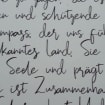 en und schützende
mpass, der uns für
kanntes Land, Sie
Seele und prägt
ist Zusammenha